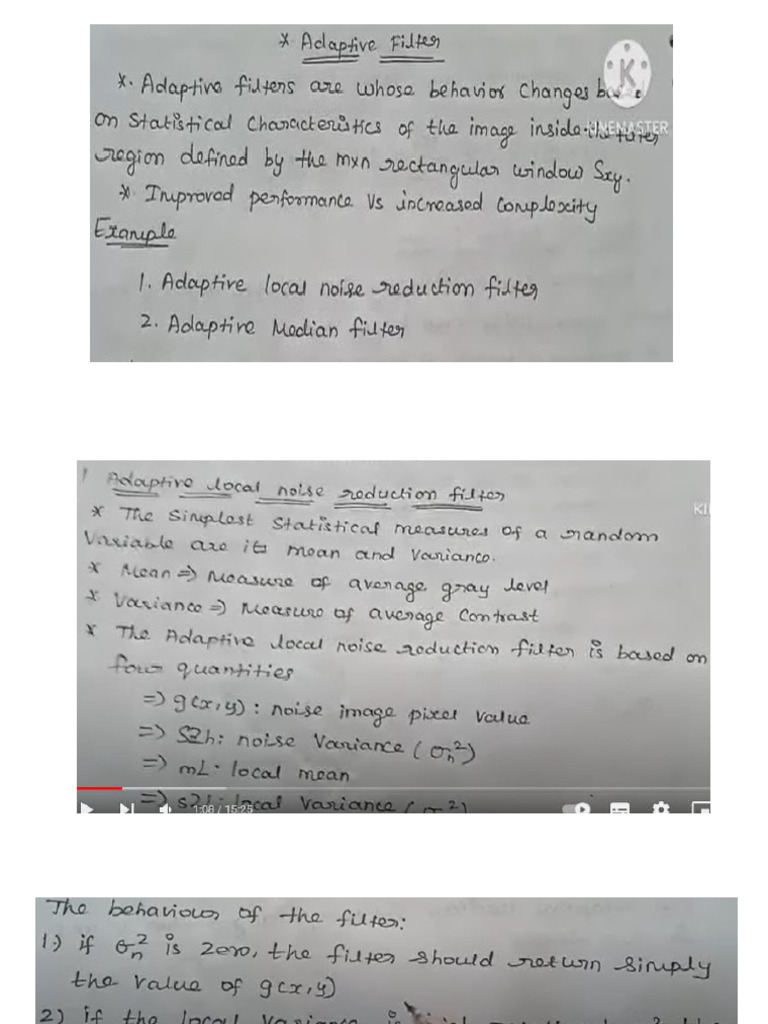 * Adaptive Filter
*. Adaptive filters are whose behavior changes based
on statistical characteristics of the image inside the filter
region defined by the mxn rectangular window Sxy.
* Improved performance Vs increased complexity
Example
1. Adaptive local noise reduction filter
2. Adaptive Median filter
K
KINEMASTER
1 Adaptive local noise reduction filter
* The simplest statistical measures of a random
Variable are its mean and variance.
* Mean => Measure of average gray level
* Variance => Measure of average contrast
* The Adaptive local noise reduction filter is based on
four quantities
=> g(x,y): noise image pixel value
=> S2h: noise Variance (σn²)
=> mL: local mean
=> s2L: local variance (σ²)
KI
1:08 / 15:25
The behaviour of the filter:
1.) if σn² is zero, the filter should return simply
the value of g(x,y)
2) if the local variance is